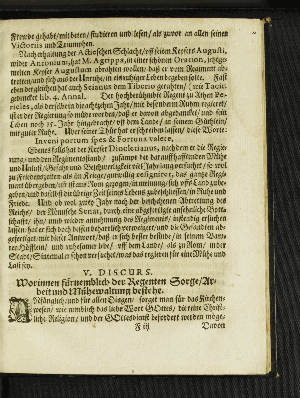 Frewde gehabt / mit beten / studieren und lesen / als zuvor an allen seinen
Victoriis und Triumphen.
Nach erhaltung der Actischen Schlacht / uff seiten Keysers Augusti,
wider Antonium, hat M. Agrippa, in einer schönen Oration, itztge-
melten Keyser Augustum abrahten wollen / daß er vom Regiment ab-
und sich aus der Unruhe / in einruhiger Leben begeben solte. Fast
eben dergleichen hat auch Seianus dem Tiberio gerahten / (wie Tacit.
gedencket lib. 4. Annal. Der hochberühmbte Regent zu Athen Pe-
ricles, als derselbe in die achtzehen Jahr / mit besondern Ruhm regieret /
ist er der Regierung so müde worden / daß er davon abgedancket / und sein
Leben noch Jahr hingebracht / uff dem Lande / in seinem Gütchen /
mit guter Ruhe. Uber seiner Thür hat er schreiben lassen / diese Wort:
Inveni portum spes & Fortuna valete.
Ebenes falls hat der Keyser Diocletianus, nachdem er die Regie-
rung / und den Regimentsstand / zusampt der darauff hafftenden Mühe
und Unlust / und Beschwerligkeit viel Jahr lang versuchet / so wol
zu Friedenszeiten als im Kriege / gutwillig resigniret, das gantze Regi-
ment ubergeben / uff sich aus Rom gezogen / in meinung / sich uffs Land zube-
geben / und daselbst die ubrige Zeit seines Lebens in Ruhe und
Friede. Und ob wol zwey Jahr nach der beschehenen Abtretung des
Reichs / der Römische Senat, durch eine abgefertigte ansehnliche Gesan-
schafft / ihn / umb wieder annehmung des Regiments / inständig ersuchen
lassen / hat er sich doch dessen beharrlich verweigert / und die Gesandten ab-
gefertiget mit dieser Antwort / daß es sich besser befinde / in seinem Bau-
ren Höfflein / und ruhesamer lebe / uff dem Lande / als zu Rom / in der
Stadt / Sintemal er schon versuchet / was das regieren für eine Mühe und
Last sey.
V. DISCURS.
Worinnen fürnemblich der Regenten Sorge / Ar-
beit und Mühewaltung bestehe.
Anfänglich / und für allen Dingen / sorget man für das Kirchen-
wesen / wie nemblich das liebe Wort GOttes / die reine Christ-
liche Religion / und der GOttesdienst befördert werden möge.
F iij
Davon